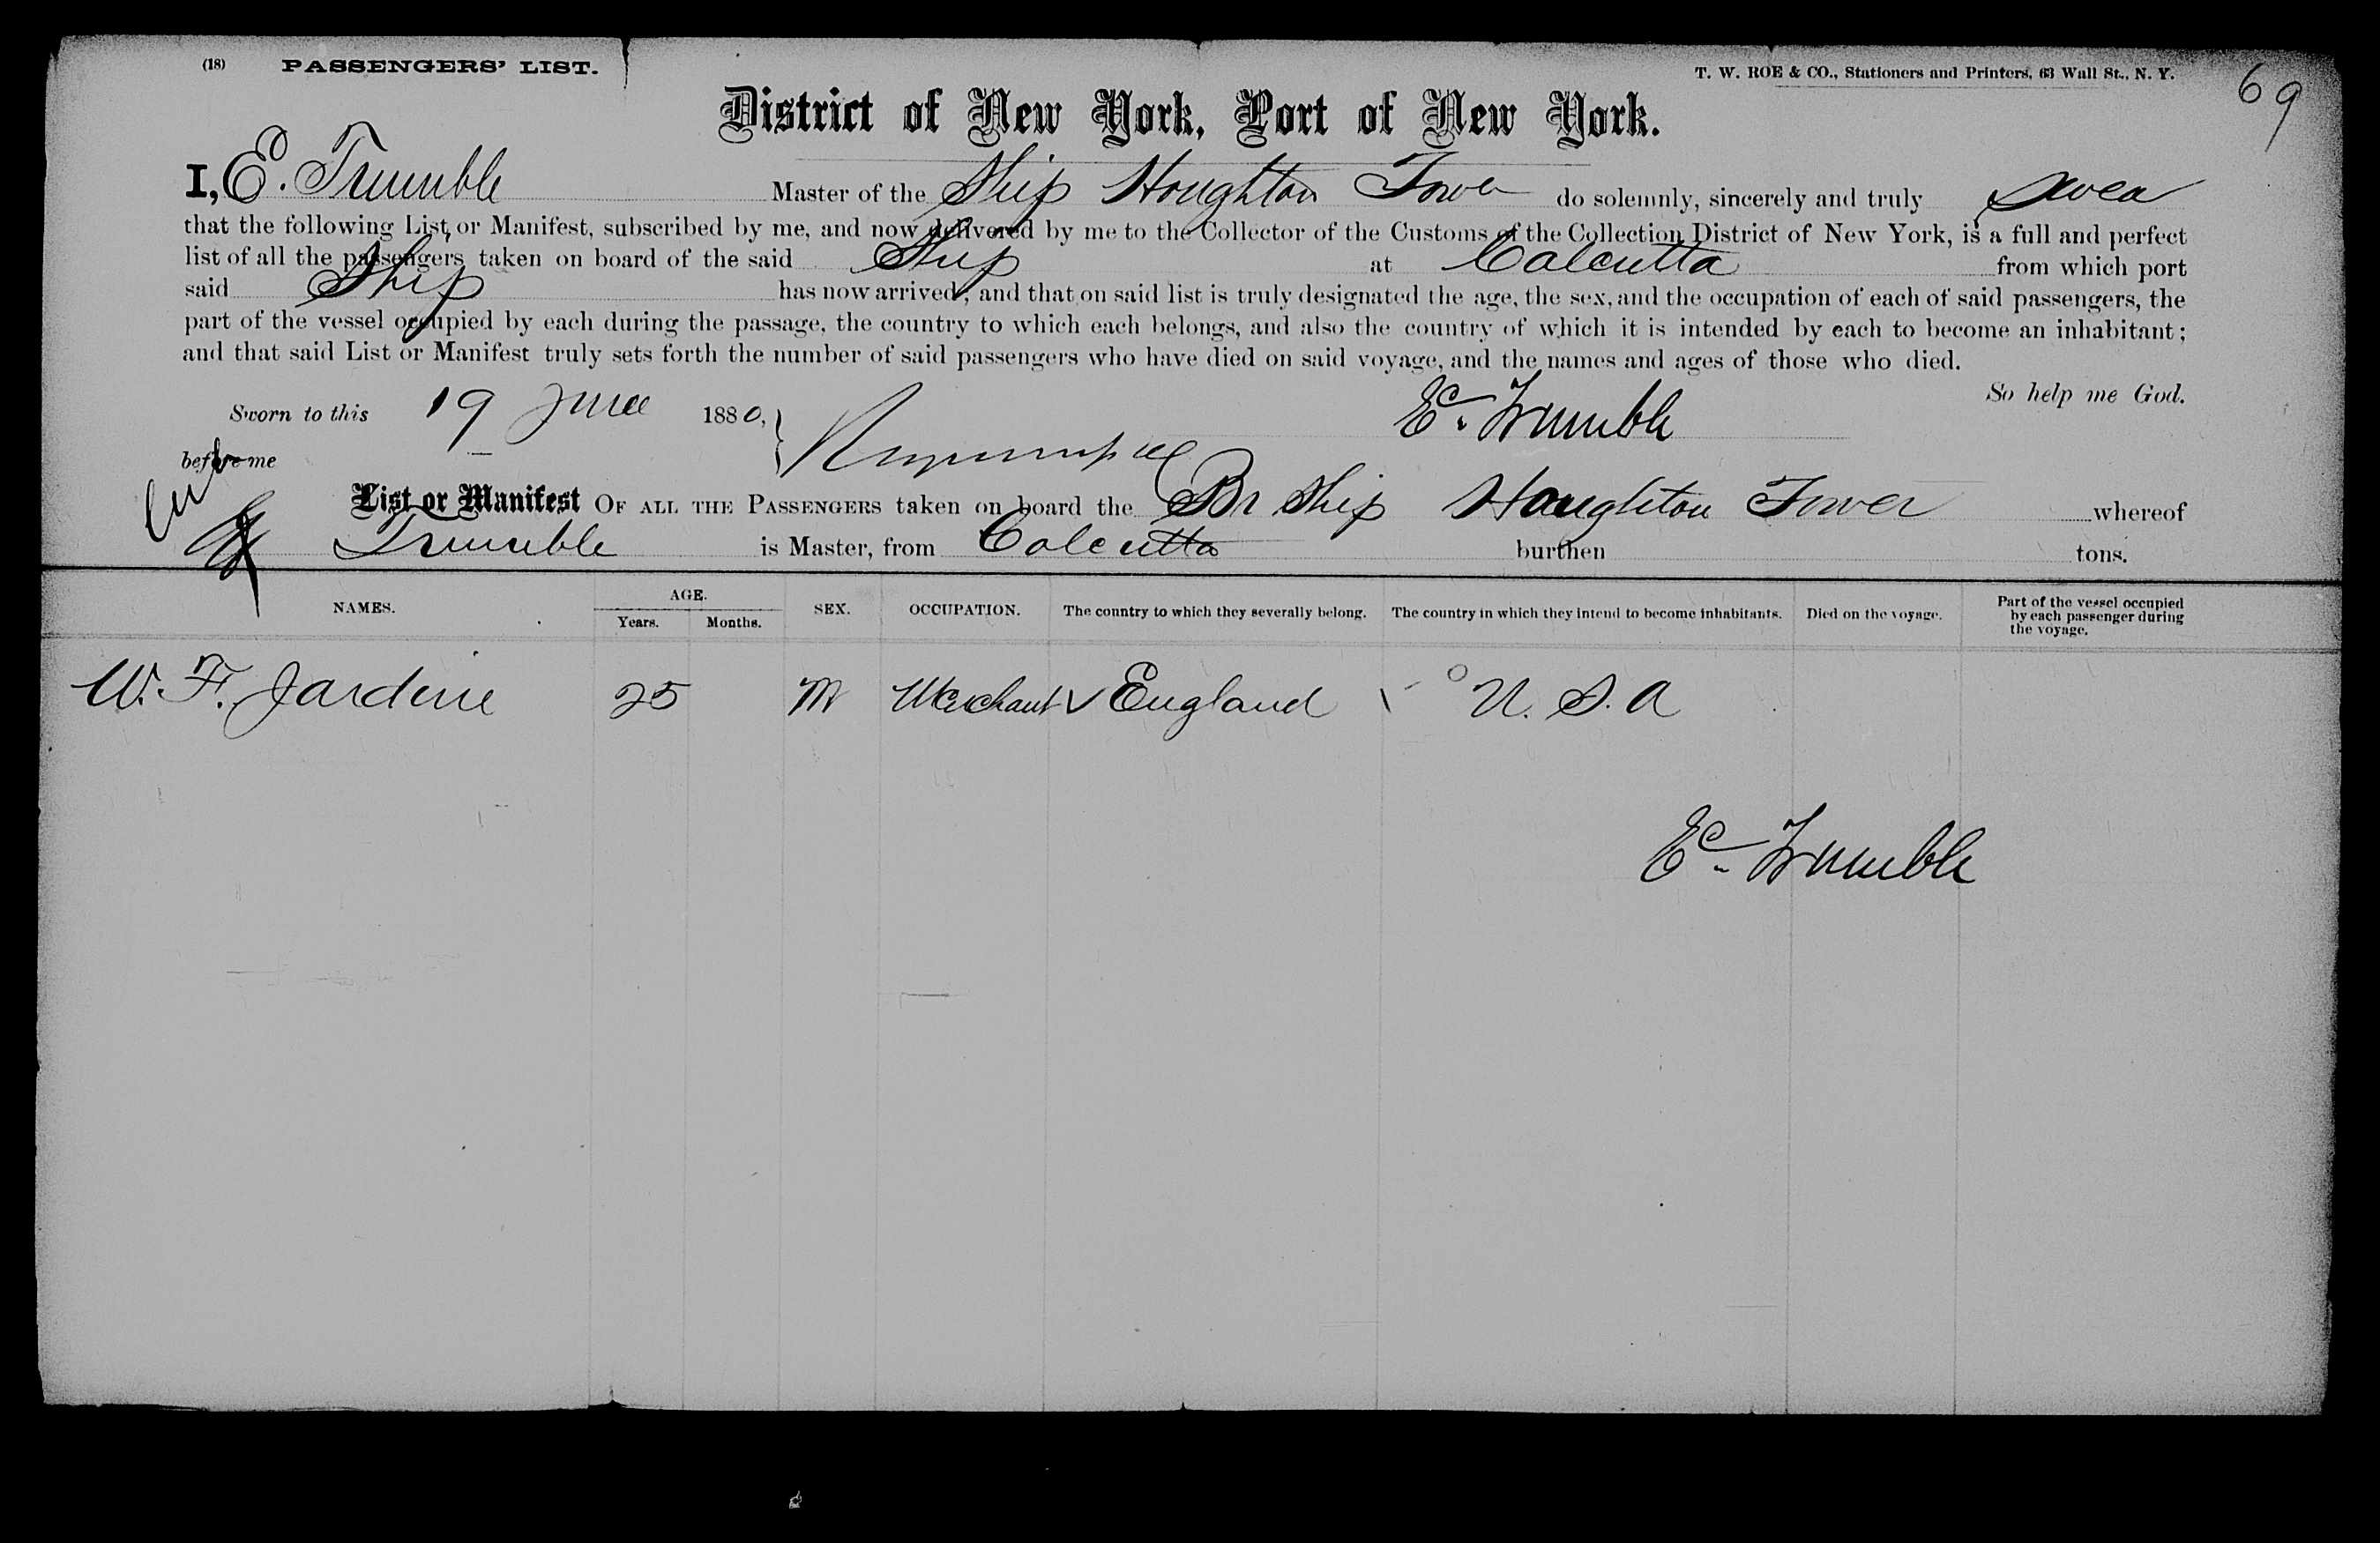 (18) PASSENGERS' LIST.
T. W. ROE & CO., Stationers and Printers, 63 Wall St., N. Y.
69
District of New York, Port of New York.
I, E. Trumble Master of the Ship Houghton Tower do solemnly, sincerely and truly swear
that the following List or Manifest, subscribed by me, and now delivered by me to the Collector of the Customs of the Collection District of New York, is a full and perfect
list of all the passengers taken on board of the said Ship at Calcutta from which port
said Ship has now arrived; and that on said list is truly designated the age, the sex, and the occupation of each of said passengers, the
part of the vessel occupied by each during the passage, the country to which each belongs, and also the country of which it is intended by each to become an inhabitant;
and that said List or Manifest truly sets forth the number of said passengers who have died on said voyage, and the names and ages of those who died.
So help me God.
Sworn to this 19 June 1880, E. Trumble
before me
List or Manifest OF ALL THE PASSENGERS taken on board the Br Ship Houghton Tower whereof
Trumble is Master, from Calcutta burthen tons.
NAMES. AGE. Years. Months. SEX. OCCUPATION. The country to which they severally belong. The country in which they intend to become inhabitants. Died on the voyage. Part of the vessel occupied by each passenger during the voyage.
W. F. Jardine 25 M Merchant England U. S. A
E. Trumble